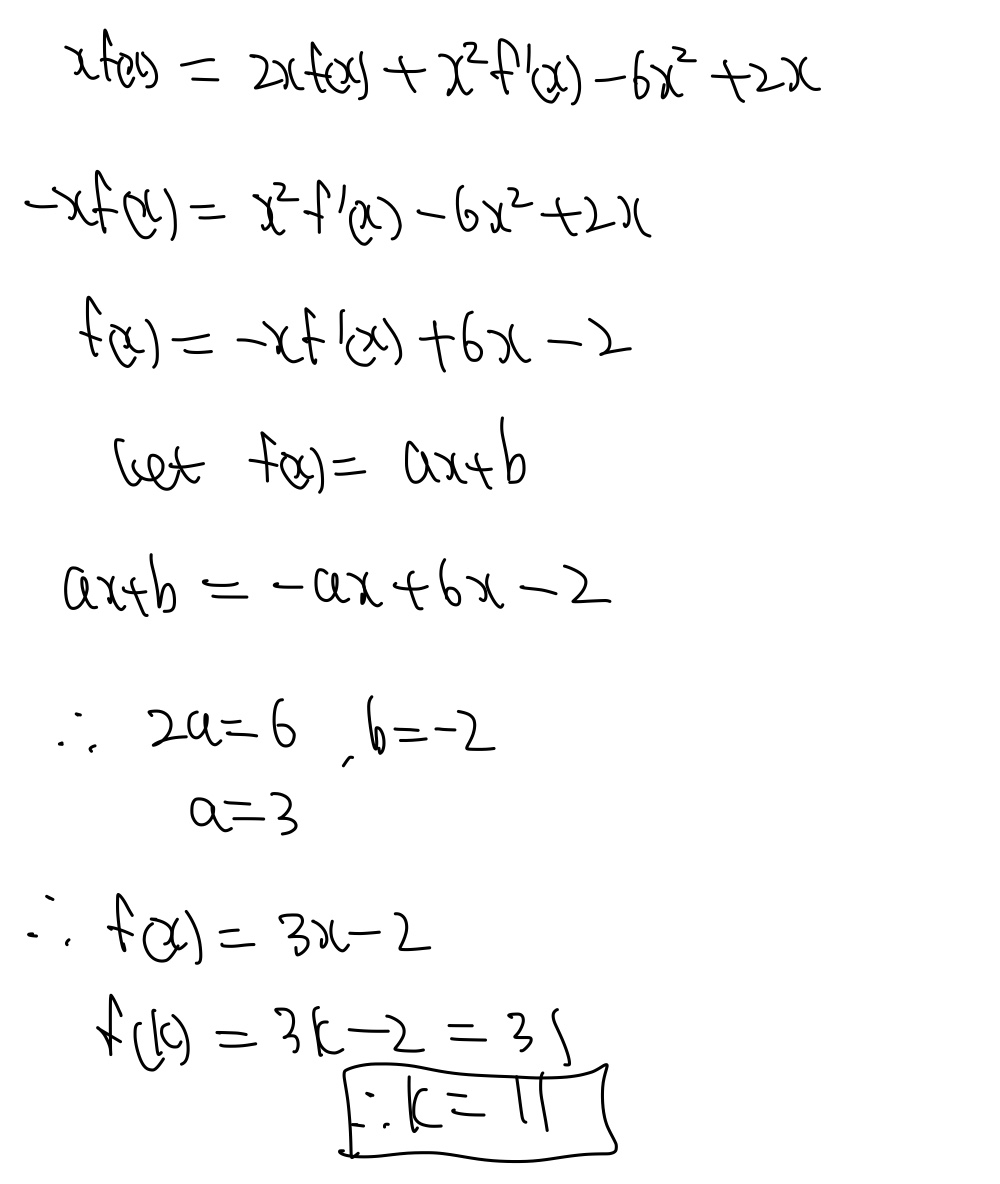 xf(x) = 2xf(x) + x²f'(x) - 6x² + 2x
-xf(x) = x²f'(x) - 6x² + 2x
f(x) = -xf'(x) + 6x - 2
let f(x) = ax+b
ax+b = -ax + 6x - 2
∴ 2a = 6, b = -2
a = 3
∴ f(x) = 3x - 2
f(k) = 3k - 2 = 31
∴ k = 11